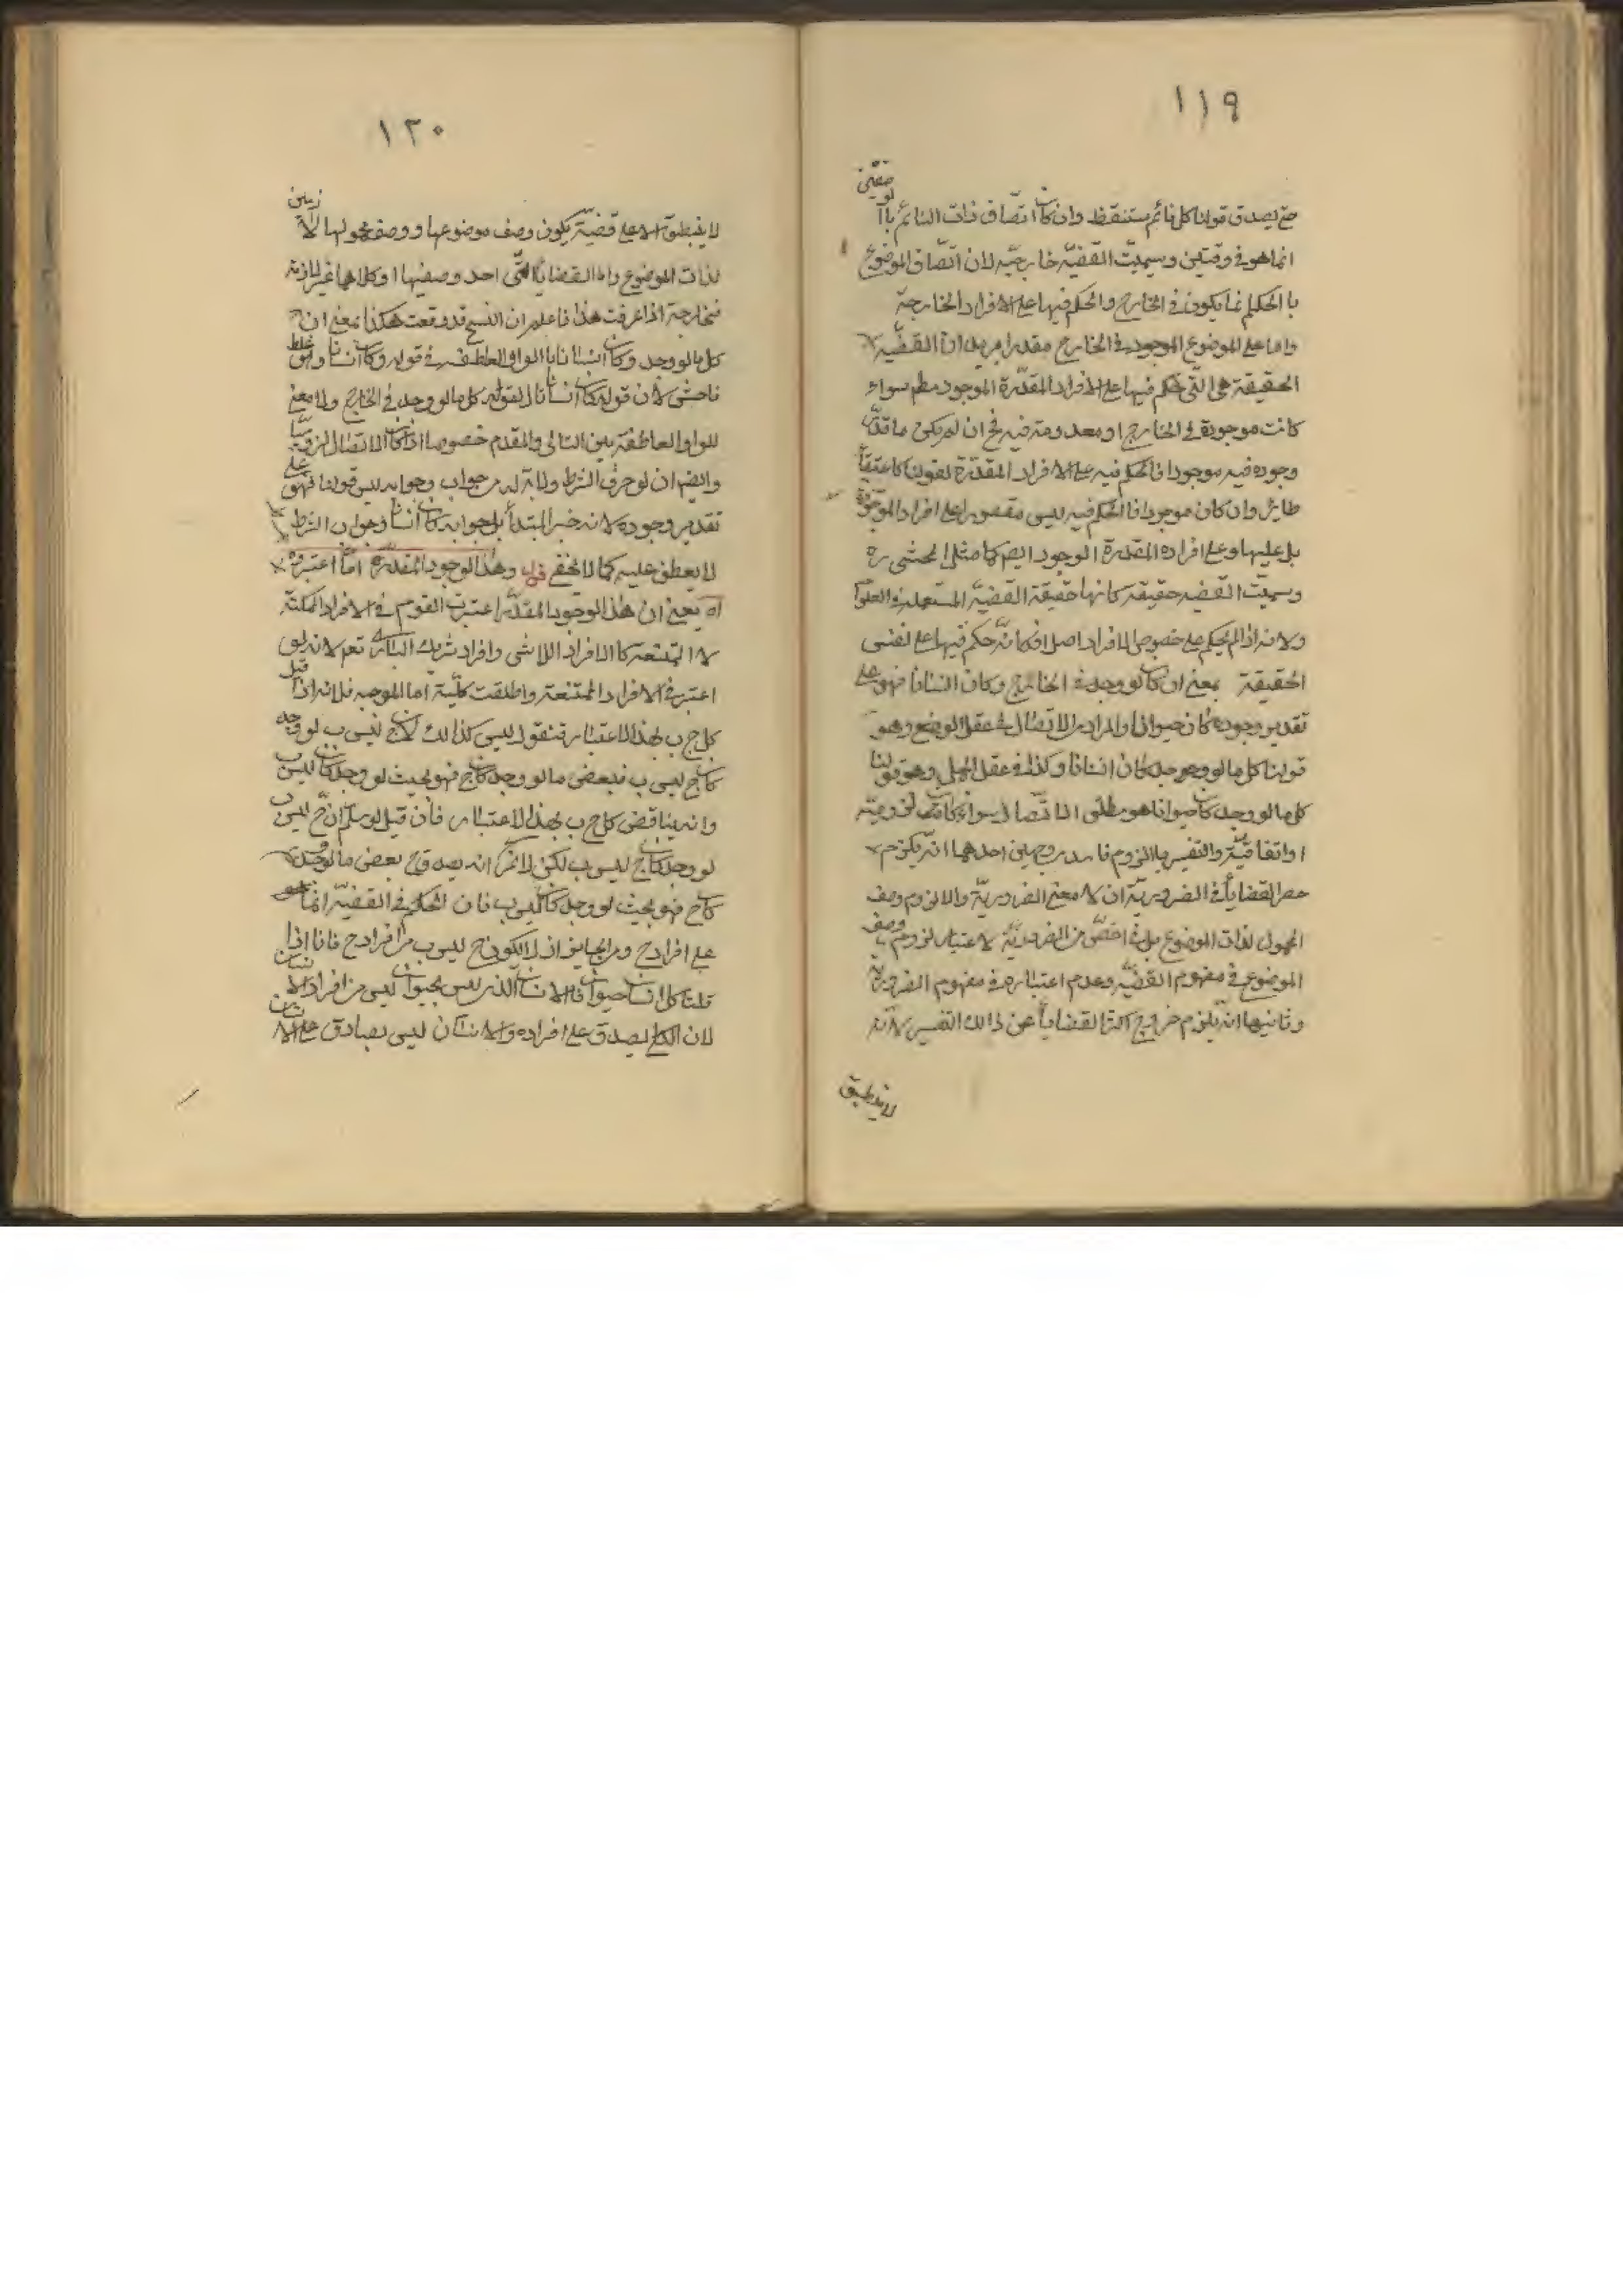 ١١٩
حتى يصدق قولنا كل نائم مستيقظ وان كان اتصاف ذات النائم بالوصفين
انما هو في وقتين وسميت القضيّة خارجيّة لان اتصاف الموضوع
با الحكم انما يكون في الخارج والحكم فيها على الافراد الخارجة
واما على الموضوع الموجود في الخارج مقدرا يريد ان القضيّة
الحقيقة هي التي حكم فيها على الافراد المقدرة الموجود مطم سواء
كانت موجودة في الخارج او معدومة فيه فح ان لم يكن ما قدّر
وجوده فيه موجودا فالحكم فيه على الافراد المقدّرة كقولنا كل عنقا
طاير وان كان موجودا فالحكم فيه ليس مقصورا على افراد الموجودة
بل عليها وعلى افراده المقدرة الوجود ايضم كما مثل المحشى ره
وسميت القضيه حقيقة كانها حقيقة القضيّة المستعملة في العلوم
ولانه اذا لم يحكم على خصوص الافراد اصلا فكانّه حكم فيها على نفس
الحقيقة بمعنى ان كل لو وجد في الخارج وكان انسانا فهو على
تقدير وجوده كان حيوانا والمراد بالاتصال في عقد الوضع وهو
قولنا كل ما لو وجد كان انسانا وكذا في عقد الحمل وهو قولنا
كل ما لو وجد كان حيوانا هو مطلق الاتّصال سواء كانت لزوميّة
او اتفاقيّة والتفسير باللزوم فاسد بوجهين احدهما انّه يلزم
حصر القضايا في الضروريّة ان لا معنى الضروريّة والا لزوم وصف
المحمول لذات الموضوع بل في اخصّ من الضروريّة لاعتبار لزوم وصف
الموضوع في مفهوم القضيّة وعدم اعتباره في مفهوم الضروريّة
وثانيها انّه يلزم خروج اكثر القضايا عن ذالك التفسير لانّه
لا ينطبق
١٢٠
لا ينطبق الا على قضيّة يكون وصف موضوعها ووصف محمولها لازمين
لذات الموضوع واما القضايا التي احد وصفيها او كلاهما غير لازمة
فخارجة اذا عرفت هذا فاعلم ان النسخ قد وقعت هكذا بمعنى ان
كل ما لو وجد وكان انسانا با الواو العاطفة في قوله وكان انسانا وهو غلط
فاحش لان قوله كان انسانا لقوله كل ما لو وجد في الخارج ولا معنى
للواو العاطفة بين التالى والمقدم خصوصا اذا كان الاتصال لزوميّا
وايضم ان لو حرف الشرط ولا بدّ له من جواب وجوابه ليس قولنا فهو على
تقدير وجوده لانه خبر المبتدأ بل جوابه كان انسانا وجواب الشرط
لا يعطف عليه كما لا يخفى قوله وهذا الوجود المقدّر انّما اعتبروه
اه يعنى ان هذا الوجود المقدّر اعتبره القوم في الافراد الممكنة
لا الممتنعة كا الافراد اللاشى وافراد شريك البارى تعم لانه لو
اعتبر في الافراد الممتنعة واطلقت كلّية اما الموجبه فلانه اذا قيل
كل ج ب بهذا الاعتبار فنقول ليس كذالك لان ج ليس ب لو وجد
كان ج ليس ب فبعض ما لو وجد كان ج فهو بحيث لو وجد كان ليس ب
وانه يناقض كل ج ب بهذا الاعتبار فان قيل لو سلم ان ج ليس ب
لو وجد كان ج ليس ب لكن لا نم انه يصدق ح بعض ما لو وجد
كان ج فهو بحيث لو وجد كان ليس ب فان الحكم في القضيّة انما هو
على افراد ج ومن الجايز ان لا يكون ج ليس ب من افراد ج فانا اذا
قلنا كل انسان حيوان فالانسان الذي ليس بحيوان ليس من افراد الانسان
لان الكلى يصدق على افراده والانسان ليس بصادق على الانسان